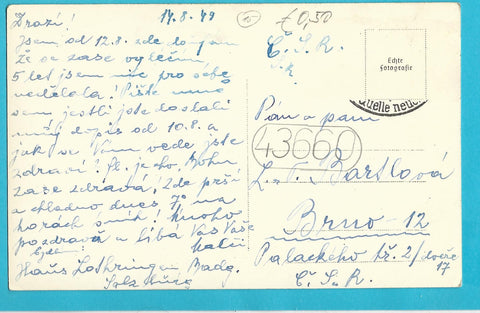 14.8.49
Drazí!
Jsem od 12.8. zde doufam
že se zase vyléčím,
5 let jsem nic pro sebe
nedělala! Pište mně
sem jestli jste dostali
můj dopis od 10.8. a
jak se Vám vede jste
zdraví? Bohu
zase zdravá, zde prší
a chladno dnes 7° na
horách sníh! Mnoho
pozdravů a líbá Vás Vaše
Haus Lothringen Badg.
Salzburg
£ 0,50
Č. S. R.
Echte
Fotografie
43660
Pán a paní
Bartlová
Brno - 12
Palackého tř. 2/dvoře
17
Č. S. R.